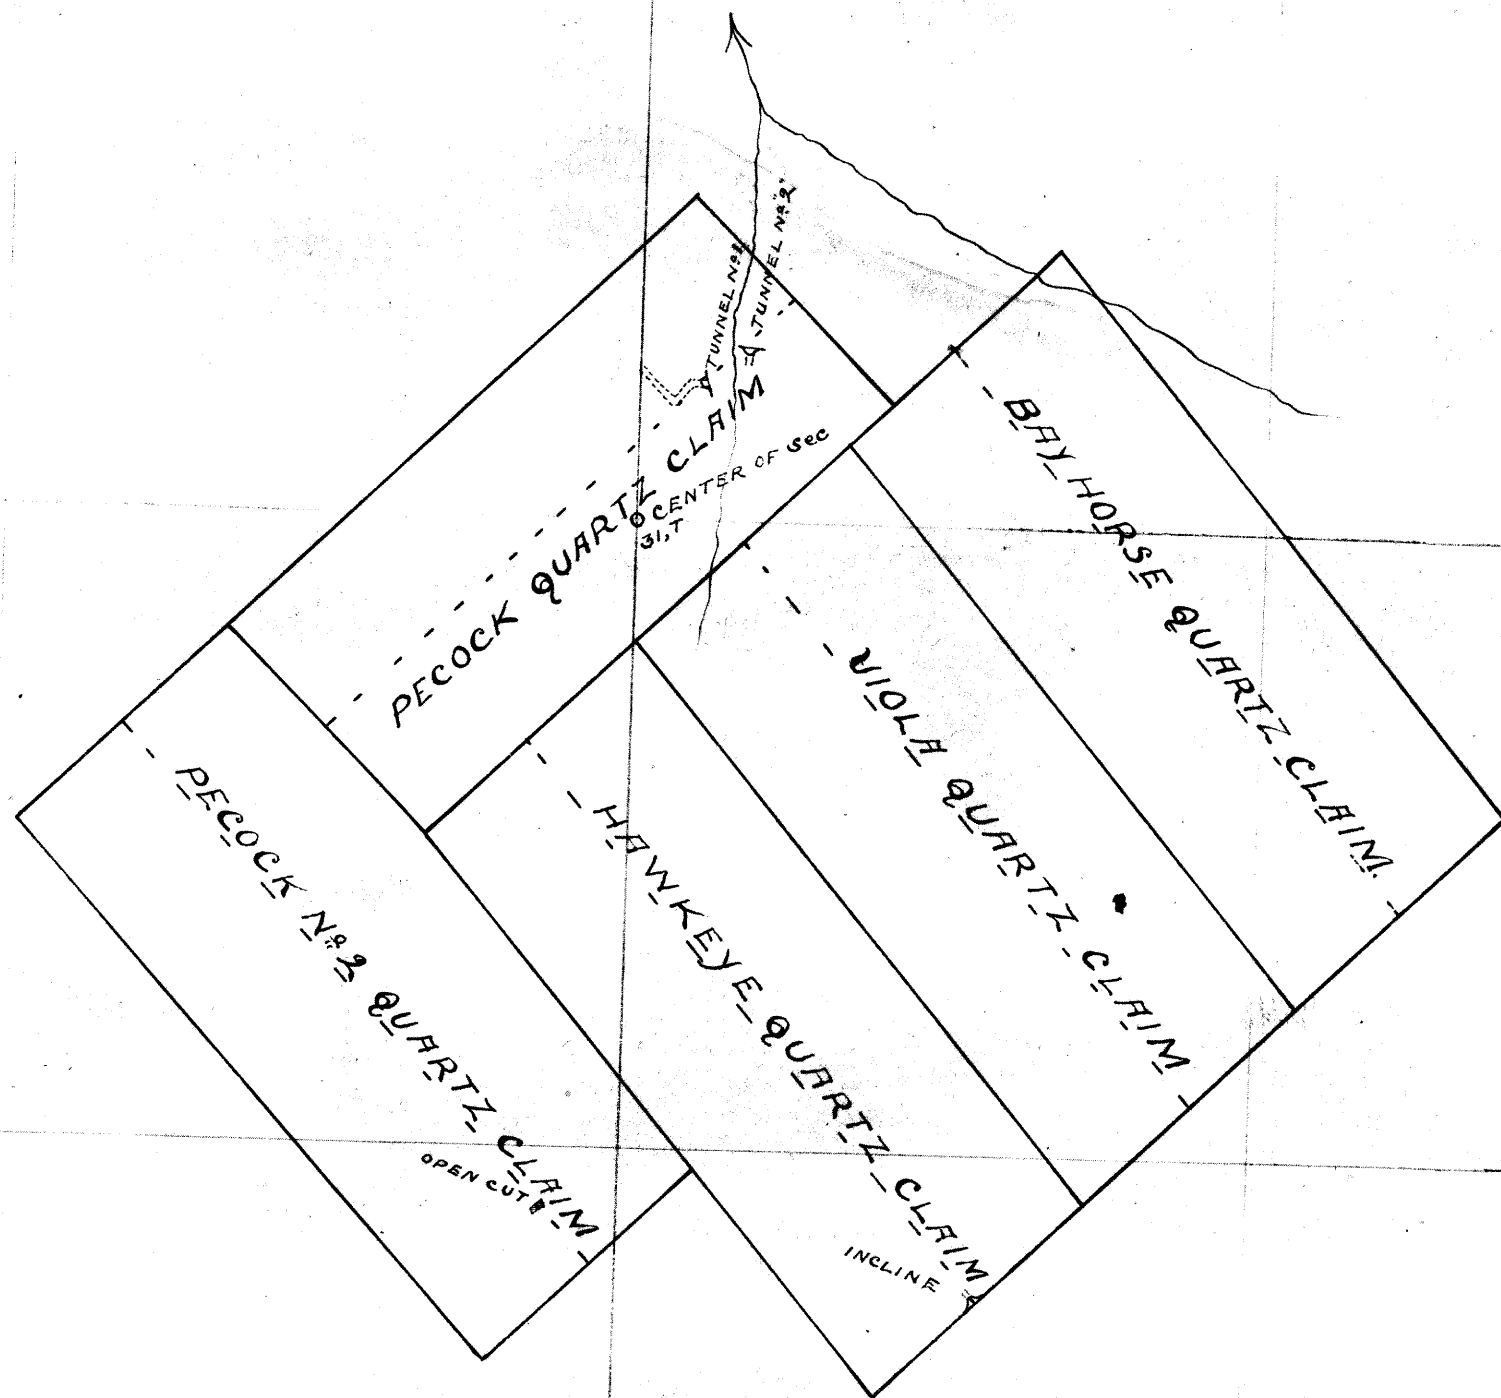 TUNNEL Nº 1
TUNNEL Nº "2"
PECOCK QUARTZ CLAIM
CENTER OF Sec
31, T
BAY HORSE QUARTZ CLAIM.
VIOLA QUARTZ CLAIM
HAWKEYE QUARTZ CLAIM
INCLINE
PECOCK Nº 2 QUARTZ CLAIM
OPEN CUT